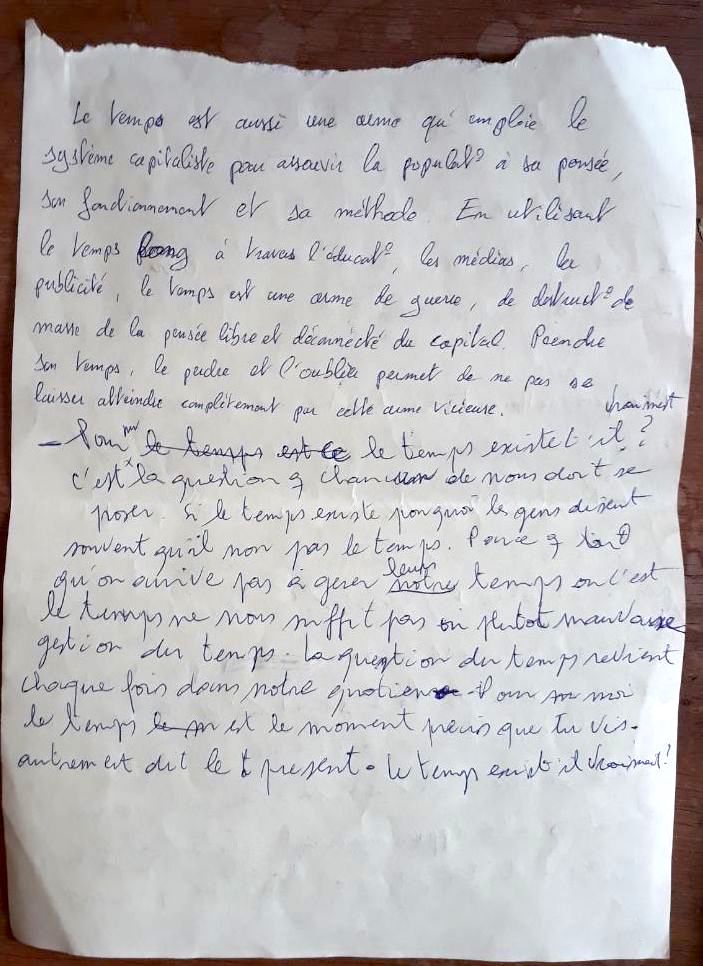 Le temps est aussi une arme qu'emploie le
système capitaliste pour assouvir la populat° à sa pensée,
son fonctionnement et sa méthode. En utilisant
le temps à travers l'éducat°, les médias, la
publicité, le temps est une arme de guerre, de destruct° de
masse de la pensée libre et déconnecté du capital. Prendre
son temps, le perdre et l'oublier permet de ne pas se
laisser atteindre complètement par cette arme vicieuse.
vraiment
- Pour le temps est ce le temps existe t-il ?
c'est la question q chacun de nous doit se
poser. Si le temps existe pourquoi les gens disent
souvent qu'il non pas le temps. Parce q
qu'on arrive pas à gerer leurs notre temps ou c'est
le temps ne nous suffit pas ou plutot mauvaise
gestion du temps. La question du temps revient
chaque fois dans notre quotien. Pour moi
le temps est le moment precis que tu vis.
autrement dit le present. Le temps existe il vraiment ?